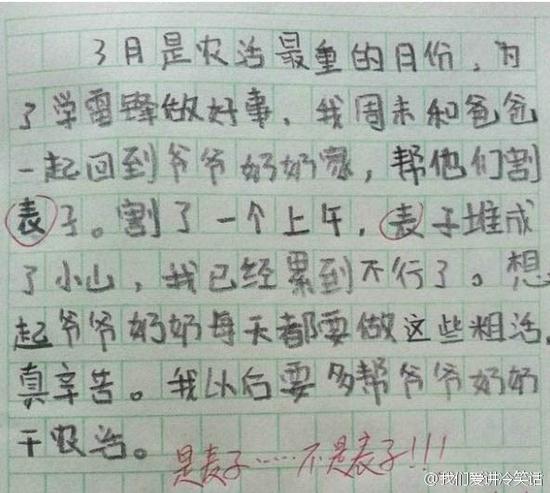 3月是农活最重的月份，为
了学雷锋做好事，我周末和爸爸
一起回到爷爷奶奶家，帮他们割
表子。割了一个上午，表子堆成
了小山，我已经累到不行了。想
起爷爷奶奶每天都要做这些粗活，
真辛苦。我以后要多帮爷爷奶奶
干农活。
是麦子……不是表子!!!
@我们爱讲冷笑话